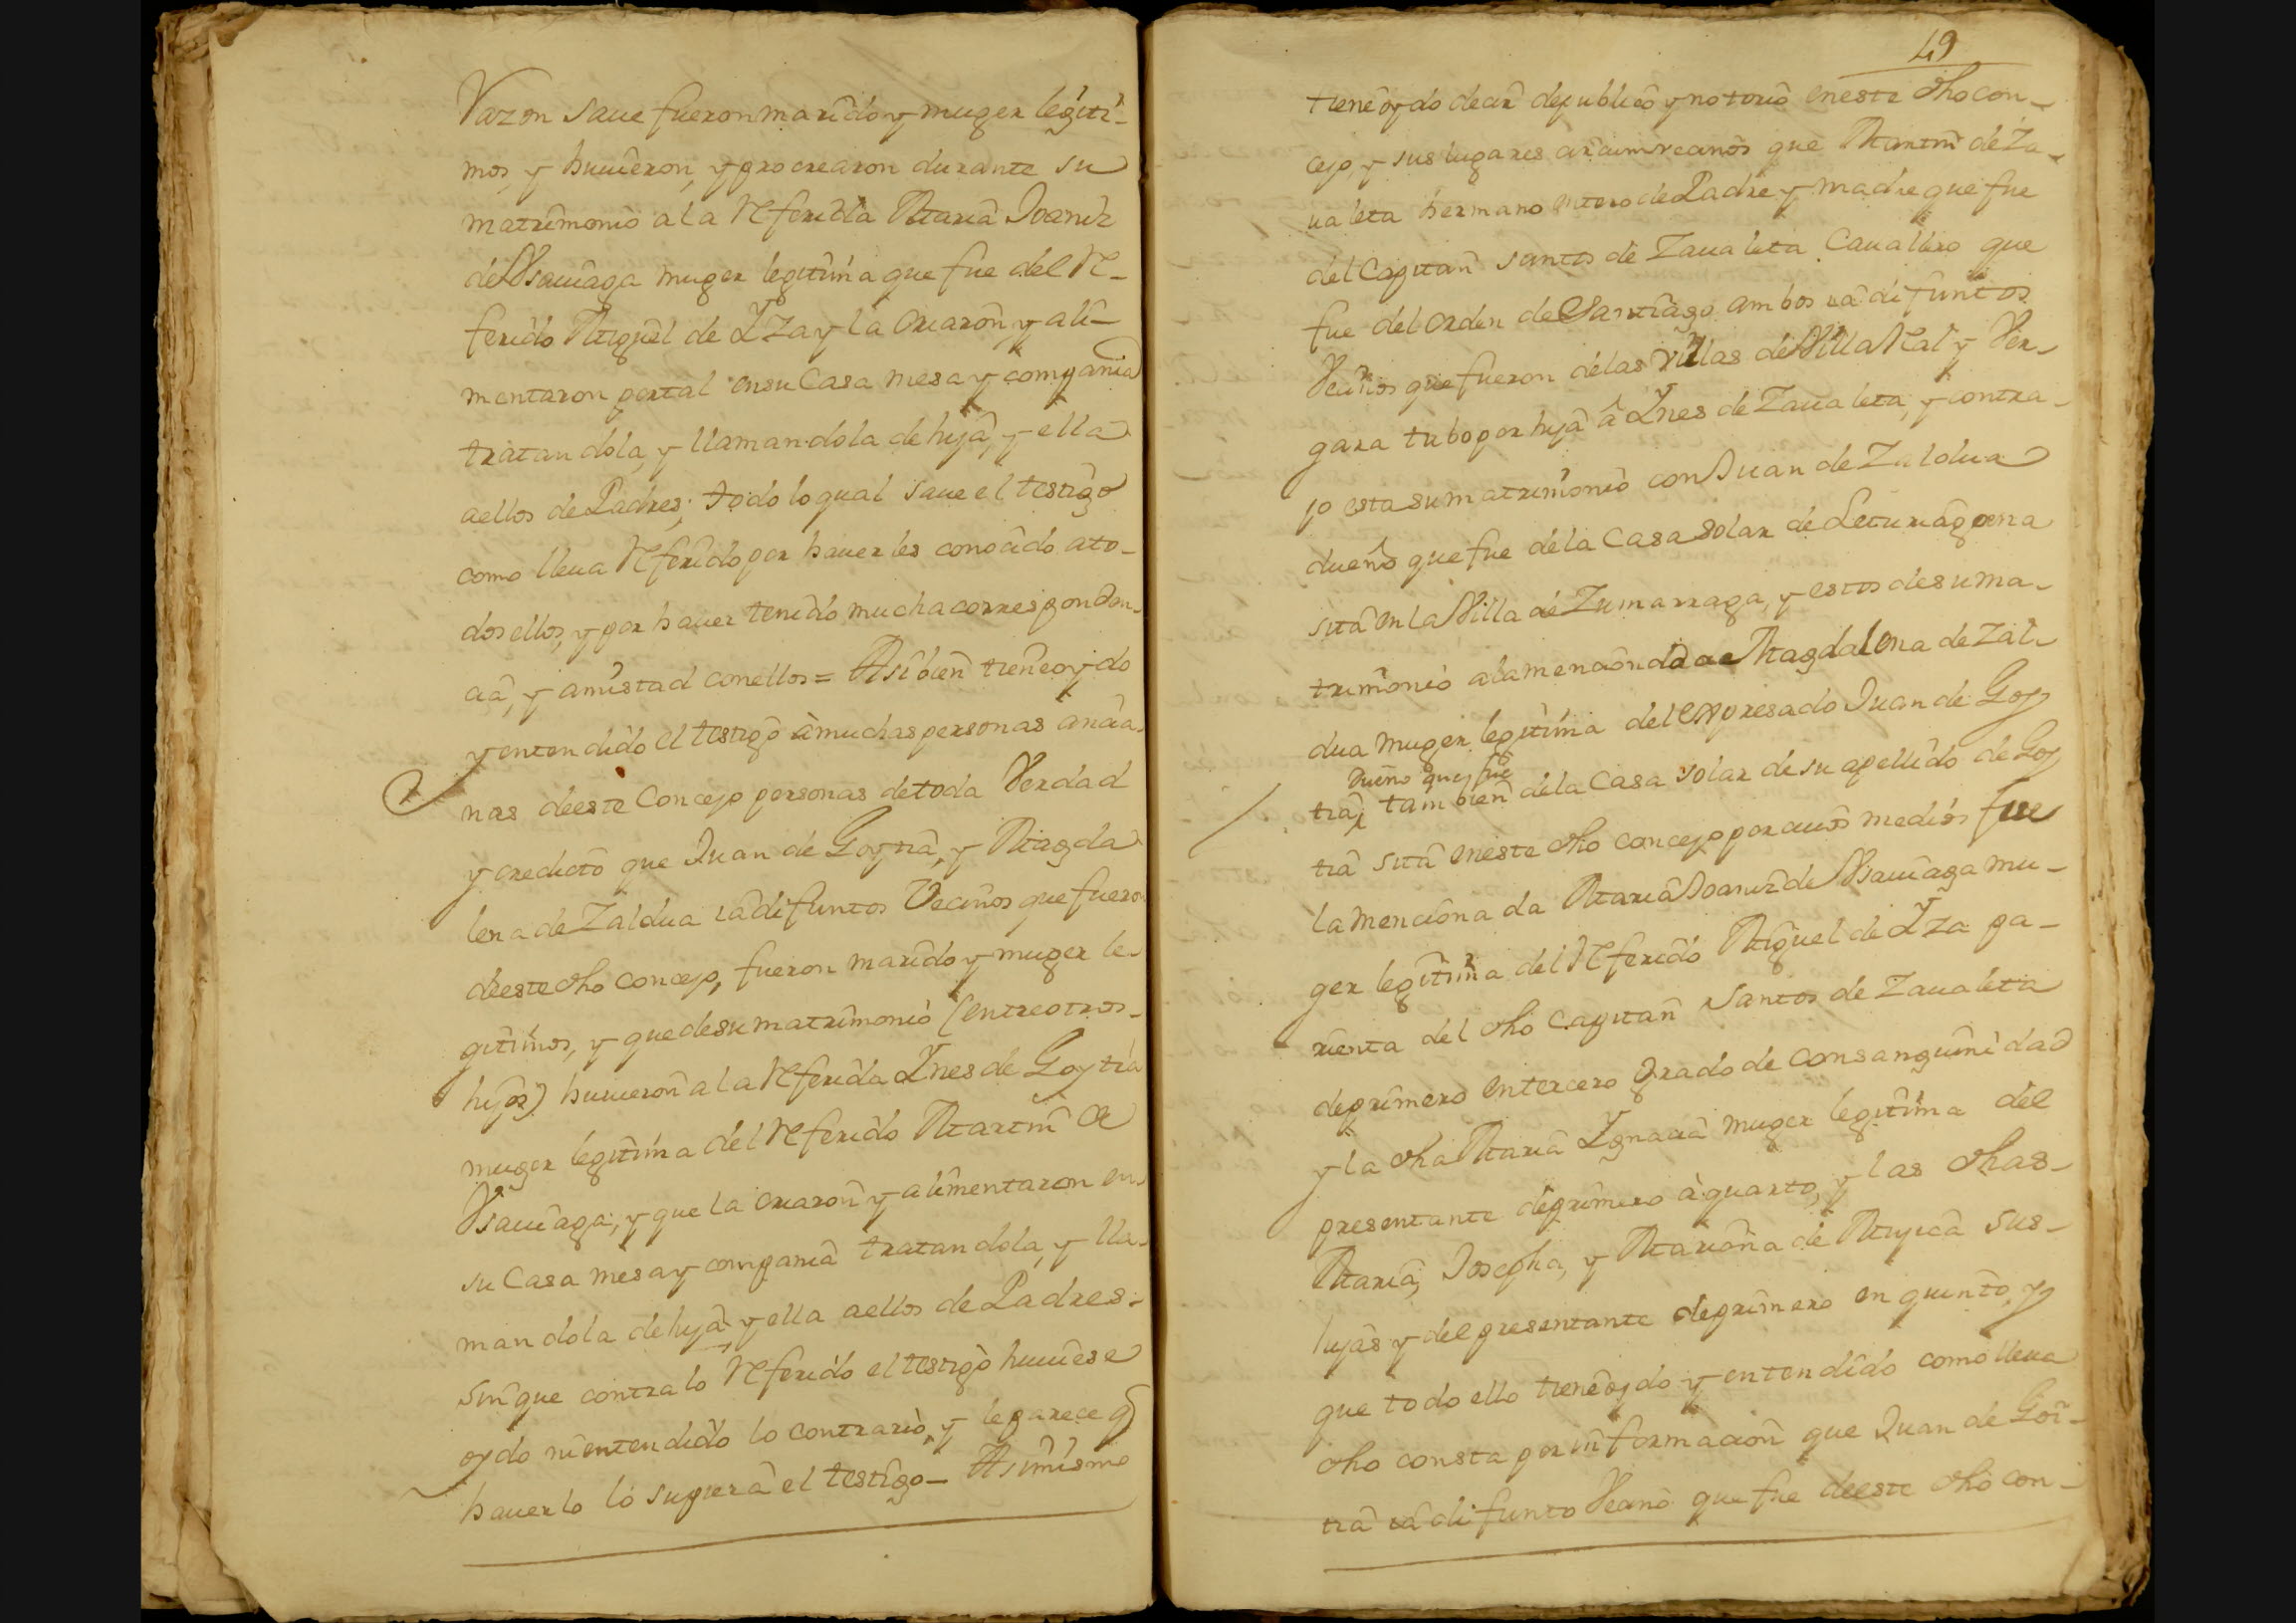 Razon saue fueron marido y muger legiti-
mos, y huuieron, y procrearon durante su
matrimonio a la Referida Maria Joaniz
de Usauiaga muger legitima que fue del Re-
ferido Miguel de Yza y la criaron y ali-
mentaron portal en su Casa mesa y compania
tratandola, y llamandola de hija, y ella
a ellos de Padres; todo lo qual saue el testigo
como lleua Referido por hauerles conocido a to-
dos ellos, y por hauer tenido mucha correspondon-
cia, y amistad con ellos = Asi bien tiene oydo
y entendido el testigo à muchas personas ancia-
nas de este Concejo personas de toda Verdad
y credicto que Juan de Goytia, y Magda
lena de Zaldua ia difuntos Vecinos que fueron
de este dho concejo, fueron marido y muger le-
gitimos, y que de su matrimonio (entre otros
hijos) huuieron a la Referida Ynes de Goytia
muger legitima del Referido Martin de
Usauiaga, y que la criaron y alimentaron en
su Casa mesa y compania tratandola, y lla-
mandola de hija, y ella a ellos de Padres
sin que contra lo Referido el testigo huuiese
oydo ni entendido lo contrario, y le parece q
hauerlo lo supiera el testigo - Asimismo
49
tiene oydo decir de publico y notorio en este dho con-
cejo, y sus lugares circumvecinos que Martin de Za-
ualeta hermano entero de Padre y madre que fue
del Capitan santos de Zaualeta Cauallero que
fue del orden de Santiago ambos ia difuntos
Vecinos que fueron de las villas de Villa Real y Ver-
gara tubo por hija à Ynes de Zaualeta, y contra-
jo esta su matrimonio con Juan de Zaldua
dueño que fue de la Casa solar de Leturiagoena
sita en la Villa de Zumarraga, y estos de su ma-
trimonio a la mencionada de Magdalena de Zal-
dua muger legitima del expresado Juan de Goy
Dueño que fue
tia, tambien de la Casa solar de su apellido de Goy
tia sita en este dho concejo por cuios medios fue
la mencionada Maria Joaniz de Usauiaga mu-
ger legitima del Referido Miguel de Yza pa-
rienta del dho Capitan Santos de Zaualeta
de primero en tercero grado de consanguinidad
y la dha Maria Ygnacia muger legitima del
presentante de primero à quarto, y las dhas
Maria, Josepha, y Mariana de Mugica sus
hijas y del presentante de primero en quinto, y
que todo ello tiene oydo y entendido como lleua
dho consta por informacion que Juan de Goi-
tia ia difunto Vecino que fue de este dho con-